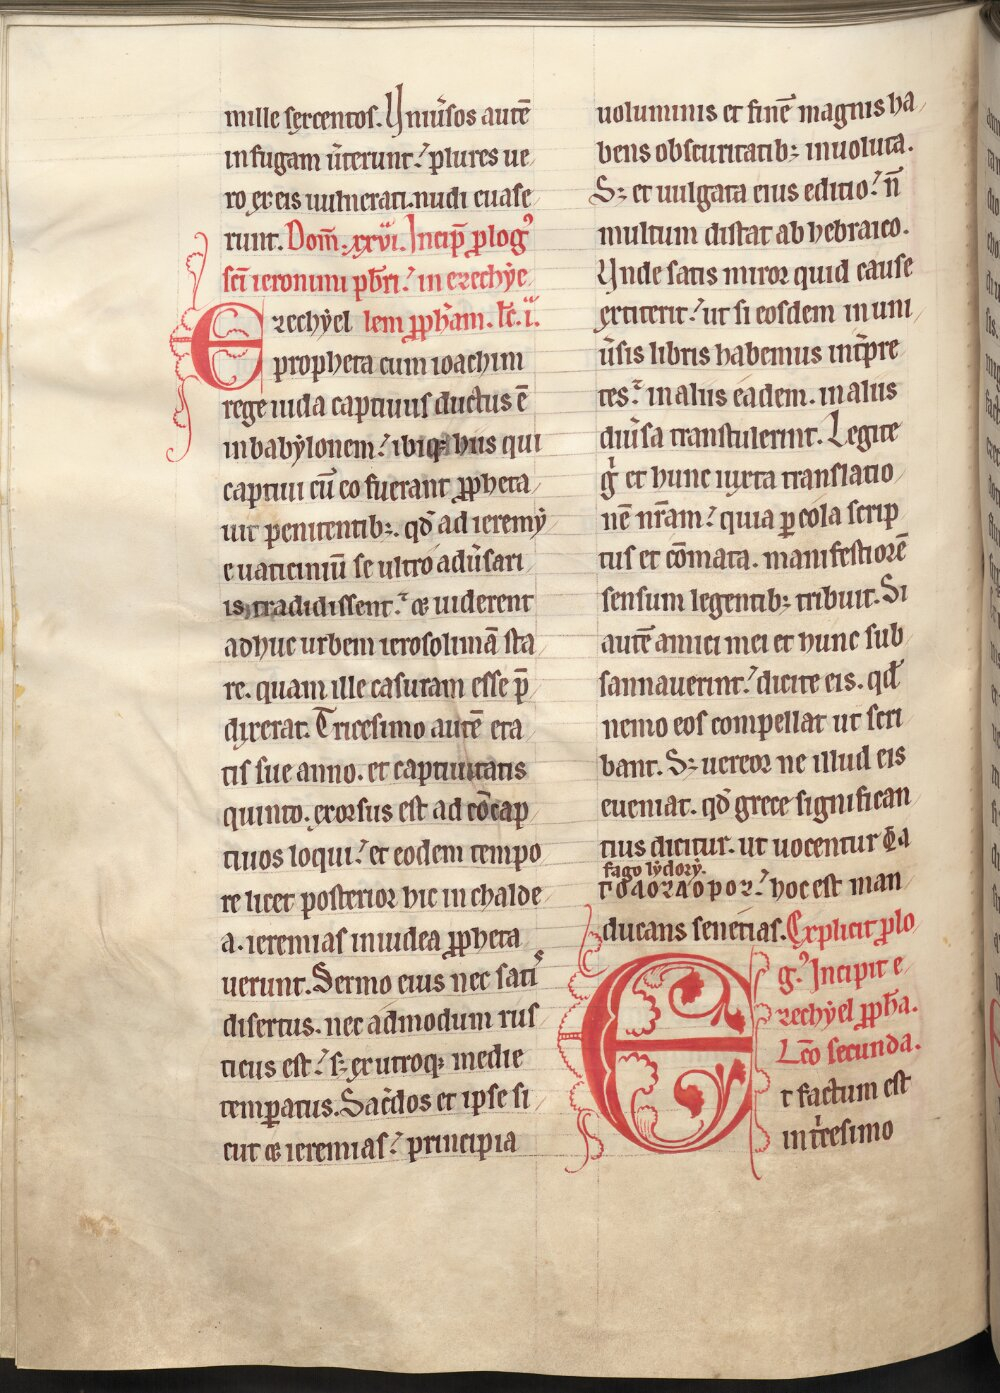 mille sexcentos. Uniũsos autē
in fugam ũterunt.᾽ plures ue
ro ex eis uulnerati. nudi euase
runt. Dom̄. xxvi. Incip̄ ꝓlog᾽
sc̄i ieronimi pb̄ri.᾽ in ezechẏe
Ezechẏel lem ꝓph̄am. lc̄. i.
propheta cum ioachim
rege iuda captiuus ductus ē
in babẏlonem.᾽ ibiqꝫ hiis qui
captiui cū eo fuerant ꝓpheta
uit penitentibꝫ. qđ ad ieremẏ
e uaticiniū se ultro adũsari
is tradidissent.᾽ ⁊ uiderent
adhuc urbem ierosolimā sta
re. quam ille casuram esse p̄
dixerat. Tricesimo autē eta
tis sue anno. et captiuitatis
quinto. exorsus est ad cōcap
tiuos loqui.᾽ et eodem tempo
re licet posterior hic in chalde
a. ieremias in iudea ꝓpheta
uerunt. Sermo eius nec satis
disertus. nec admodum rus
ticus est.᾽ sꝫ ex utroqꝫ medie
temꝑatus. Sac̄dos et ipse si
cut ⁊ ieremias.᾽ principia
uoluminis et finē magnis ha
bens obscuritatibꝫ inuoluta.
Sꝫ et uulgata eius editio.᾽ n̄
multum distat ab hebraico.
Unde satis miror quid cause
extiterit.᾽ ut si eosdem in uni
ũsis libris habemus int̄pre
tes.᾽ in aliis eadem. in aliis
diũsa transtulerint. Legite
gͥ et hunc iuxta translatio
nē nr̄am.᾽ quia ꝑ cola scrip
tus et cōmata. manifestiorē
sensum legentibꝫ tribuit. Si
autē amici mei et hunc sub
sannauerint.᾽ dicite eis. qđ
nemo eos compellat ut scri
bant. Sꝫ uereor ne illud eis
eueniat. qđ grece significan
tius dicitur. ut uocentur Φa
fago lẏdorẏ.
hoc est man
ducans senecias. Explicit ꝓlo
g᾽. Incipit e
zechẏel ꝓph̄a.
Lc̄o secunda.
Et factum est
in tͥcesimo